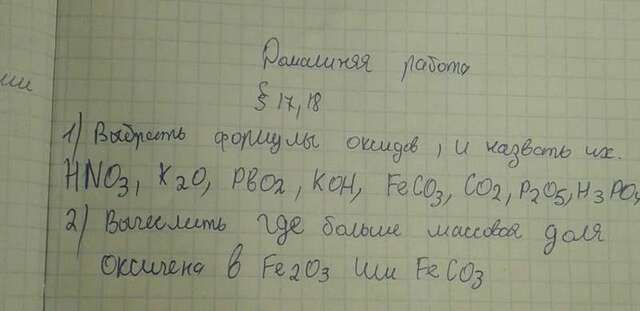 ии
Домашняя работа
§ 17, 18
1) Выбрать формулы оксидов, и назвать их.
HNO3, K2O, PbO2, KOH, FeCO3, CO2, P2O5, H3PO4
2) Вычеслить где больше массовая доля
оксигена в Fe2O3 или FeCO3